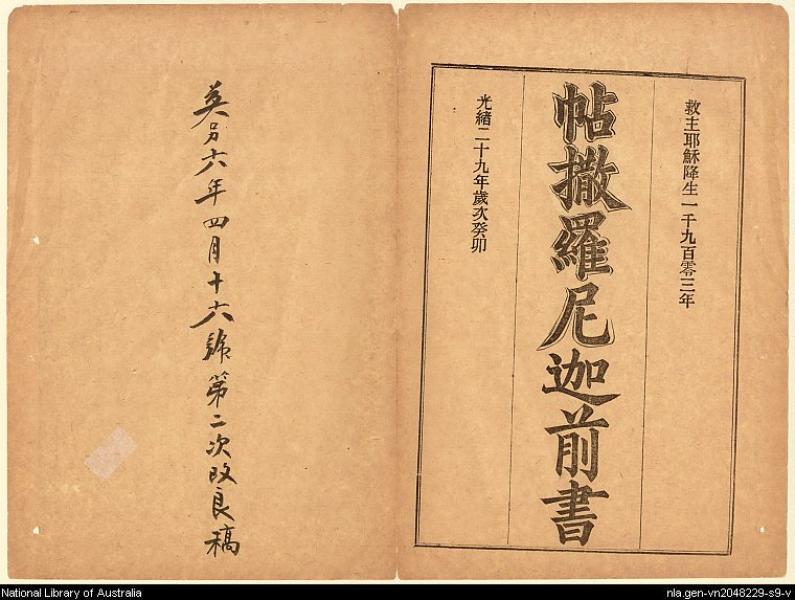 救主耶穌降生一千九百零三年
帖撒羅尼迦前書
光緒二十九年歲次癸卯
六年四月十六號第二次改良稿
National Library of Australia
nla.gen-vn2048229-s9-v